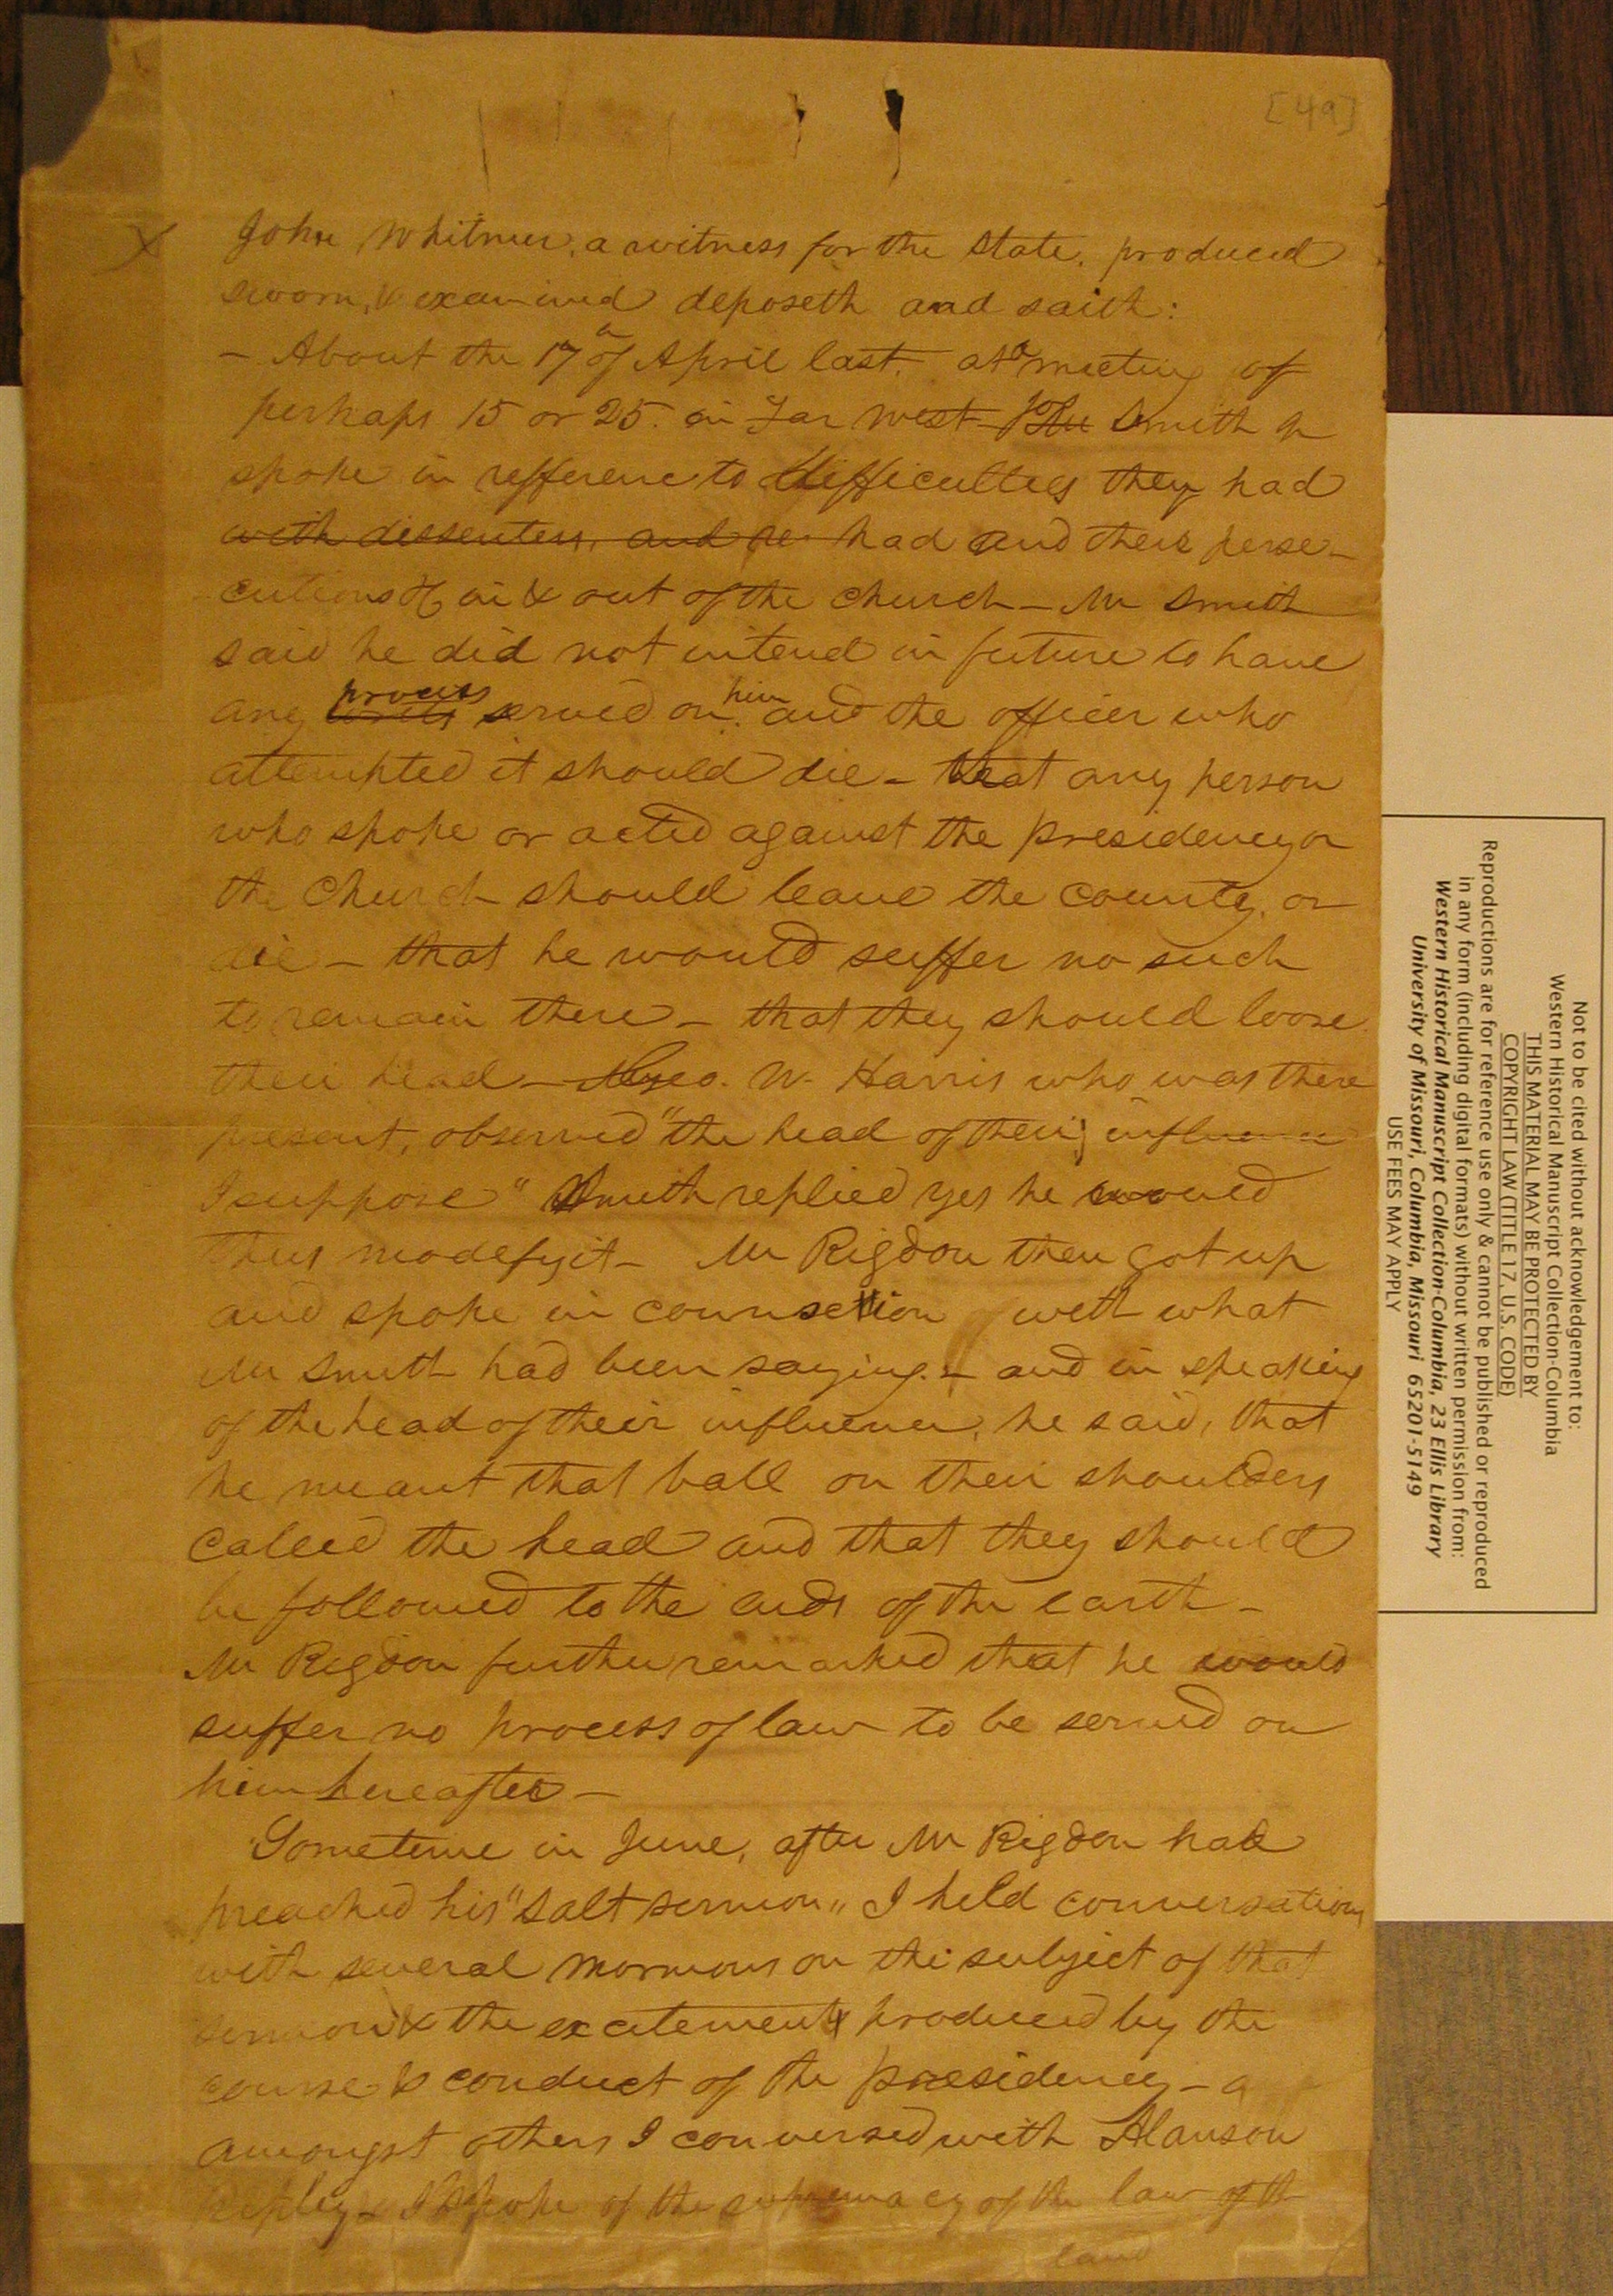 [49]
John Whitmer, a witness for the State, produced
sworn, & examined deposeth and saith:
- About the 17 of April last, at a meeting of
perhaps 15 or 25. in Far west Smith
spoke in refference to difficulties they had
with dissenters, and had and their perse-
cutions in & out of the church - Mr Smith
said he did not intend in future to have
any process served on him and the officer who
attempted it should die - that any person
who spoke or acted against the presidency or
the Church should leave the county, or
die - that he would suffer no such
to remain there - that they should loose
their head - Geo. W. Harris who was there
present, observed "the head of their influence
I suppose" Smith replied yes he would
thus modefy it - Mr Rigdon then got up
and spoke in connection with what
Mr Smith had been saying. - and in speaking
of the head of their influence, he said, that
he meant that ball on their shoulders
called the head and that they should
be followed to the ends of the earth -
Mr Rigdon further remarked that he would
suffer no process of law to be served on
him hereafter -
Sometime in June, after Mr Rigdon had
preached his "salt sermon" I held conversations
with several mormons on the subject of that
sermon & the excitement produced by the
course & conduct of the presidency -
amongst others I conversed with Alanson
Ripley - I spoke of the supremacy of the law of th
land
Not to be cited without acknowledgement to:
Western Historical Manuscript Collection-Columbia
THIS MATERIAL MAY BE PROTECTED BY
COPYRIGHT LAW (TITLE 17, U.S. CODE)
Reproductions are for reference use only & cannot be published or reproduced
in any form (including digital formats) without written permission from:
Western Historical Manuscript Collection-Columbia, 23 Ellis Library
University of Missouri, Columbia, Missouri 65201-5149
USE FEES MAY APPLY